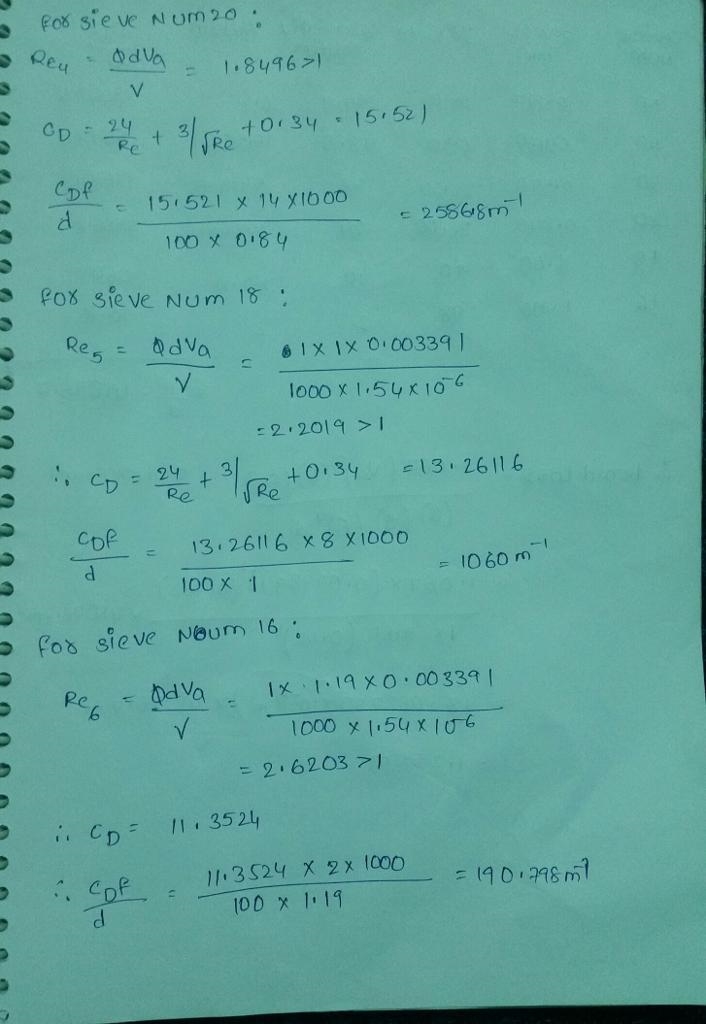 for sieve Num 20 :
Re4 = ΦdVa / V = 1.8496 >1
CD = 24/Re + 3/√Re + 0.34 = 15.521
CDf / d = 15.521 x 14 x1000 / 100 x 0.84 = 2586.8m^-1
for sieve Num 18 :
Re5 = ΦdVa / V = 1x 1x 0.003391 / 1000 x 1.54 x 10^-6
= 2.2019 >1
∴ CD = 24/Re + 3/√Re + 0.34 = 13.26116
CDf / d = 13.26116 x 8 x1000 / 100 x 1 = 1060 m^-1
for sieve Num 16 :
Re6 = ΦdVa / V = 1x 1.19 x 0.003391 / 1000 x 1.54 x 10^-6
= 2.6203 >1
∴ CD = 11.3524
∴ CDf / d = 11.3524 x 2x 1000 / 100 x 1.19 = 190.798m^-1